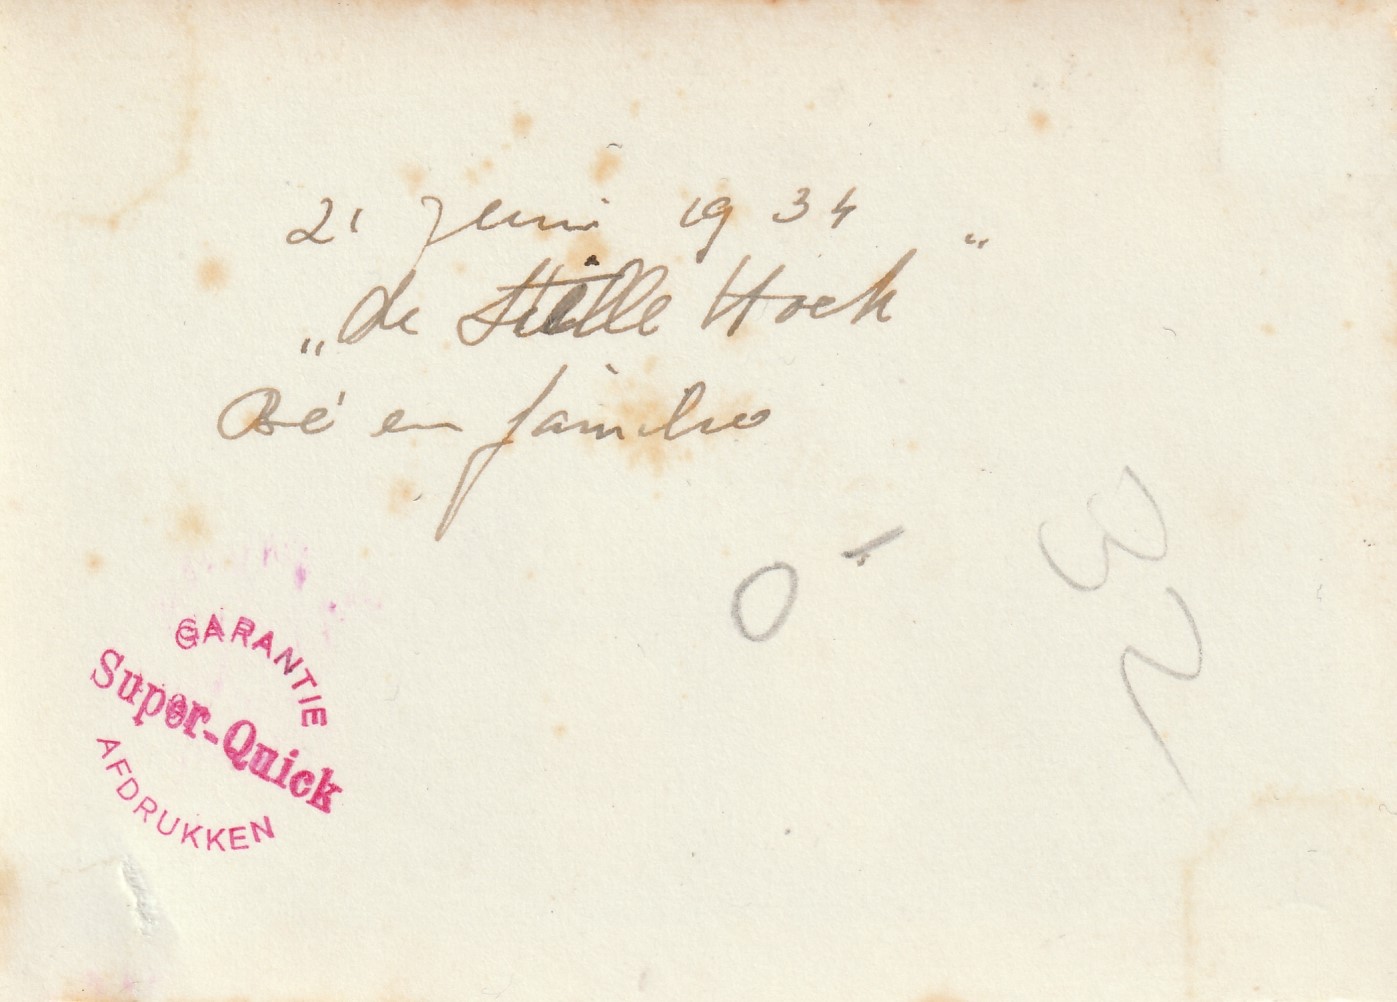 21 Juni 1934
„de Stille Hoek"
Bé en familie
0 -
32
GARANTIE
Super-Quick
AFDRUKKEN